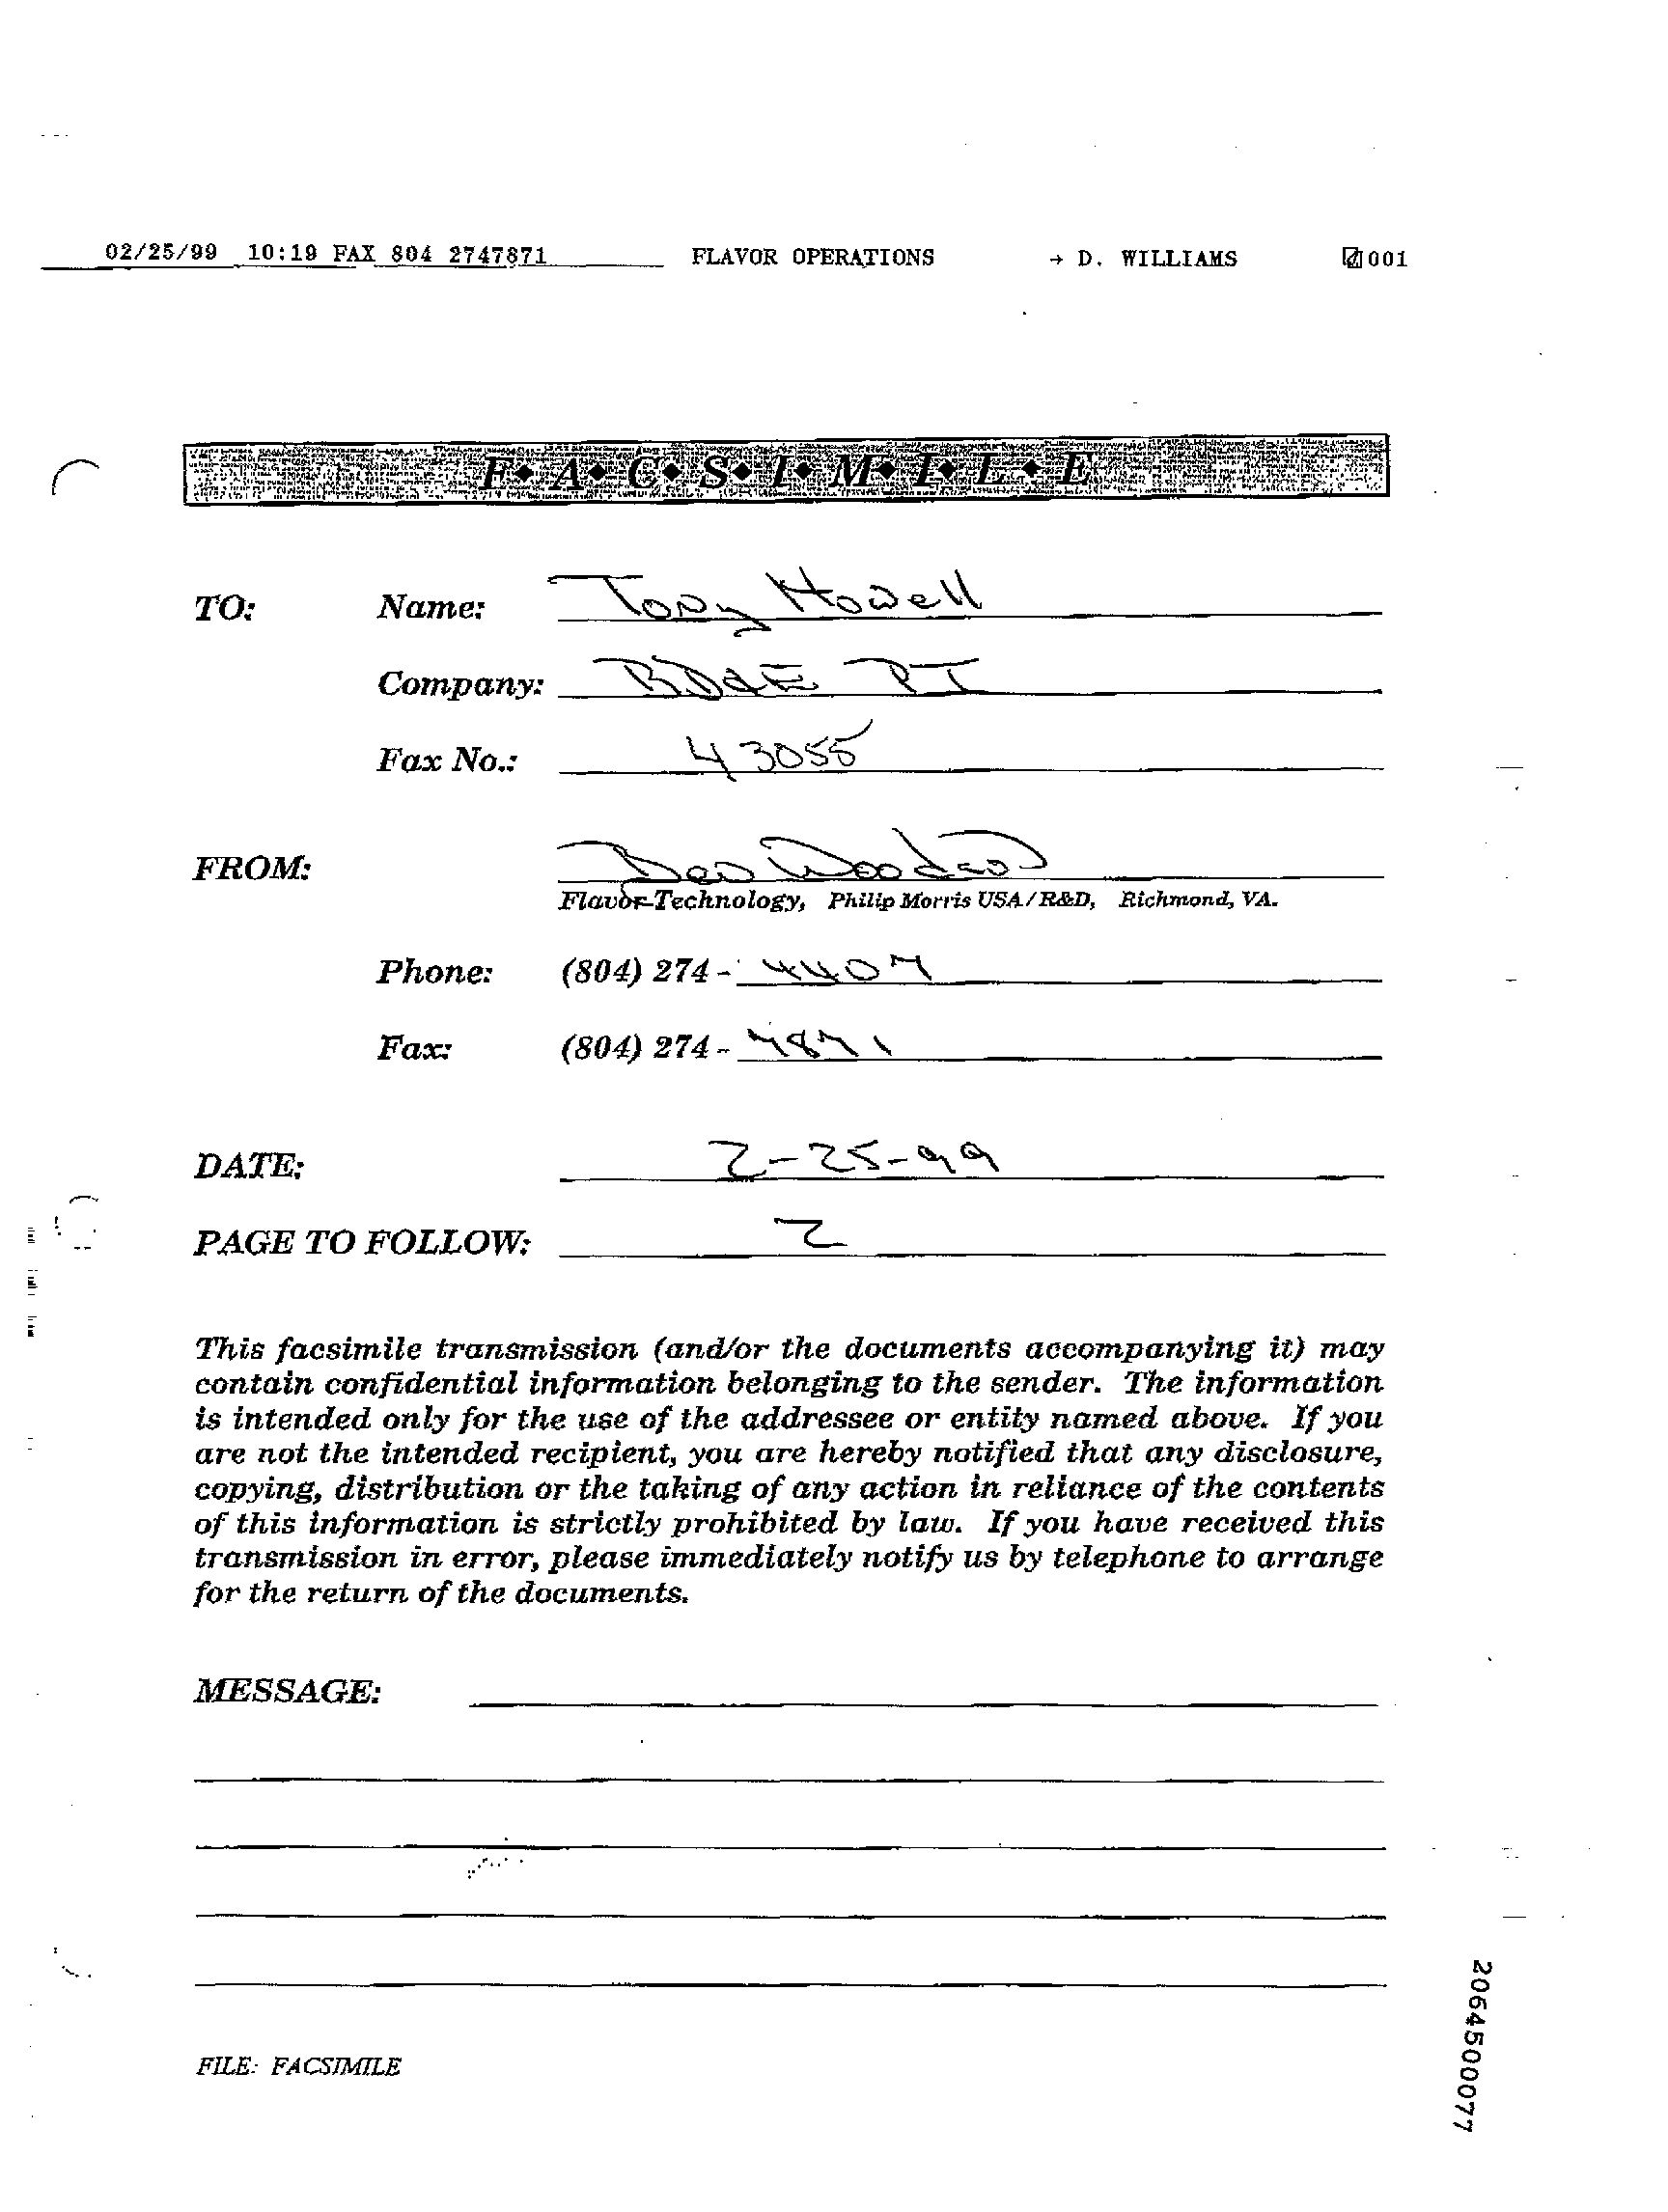 02/25/99 10:19 FAX 804 2747871 FLAVOR OPERATIONS → D. WILLIAMS 001
F◆ A◆ C◆ S◆ I◆ M◆ I◆ L◆ E
TO: Name: Tony Howell
Company: PI
Fax No.: 43055
FROM:
Flavor Technology, Philip Morris USA/R&D, Richmond, VA.
Phone: (804) 274 - 4407
Fax: (804) 274 - 7871
DATE: 2-25-99
PAGE TO FOLLOW: 2
This facsimile transmission (and/or the documents accompanying it) may
contain confidential information belonging to the sender. The information
is intended only for the use of the addressee or entity named above. If you
are not the intended recipient, you are hereby notified that any disclosure,
copying, distribution or the taking of any action in reliance of the contents
of this information is strictly prohibited by law. If you have received this
transmission in error, please immediately notify us by telephone to arrange
for the return of the documents.
MESSAGE:
FILE: FACSIMILE
2064500077